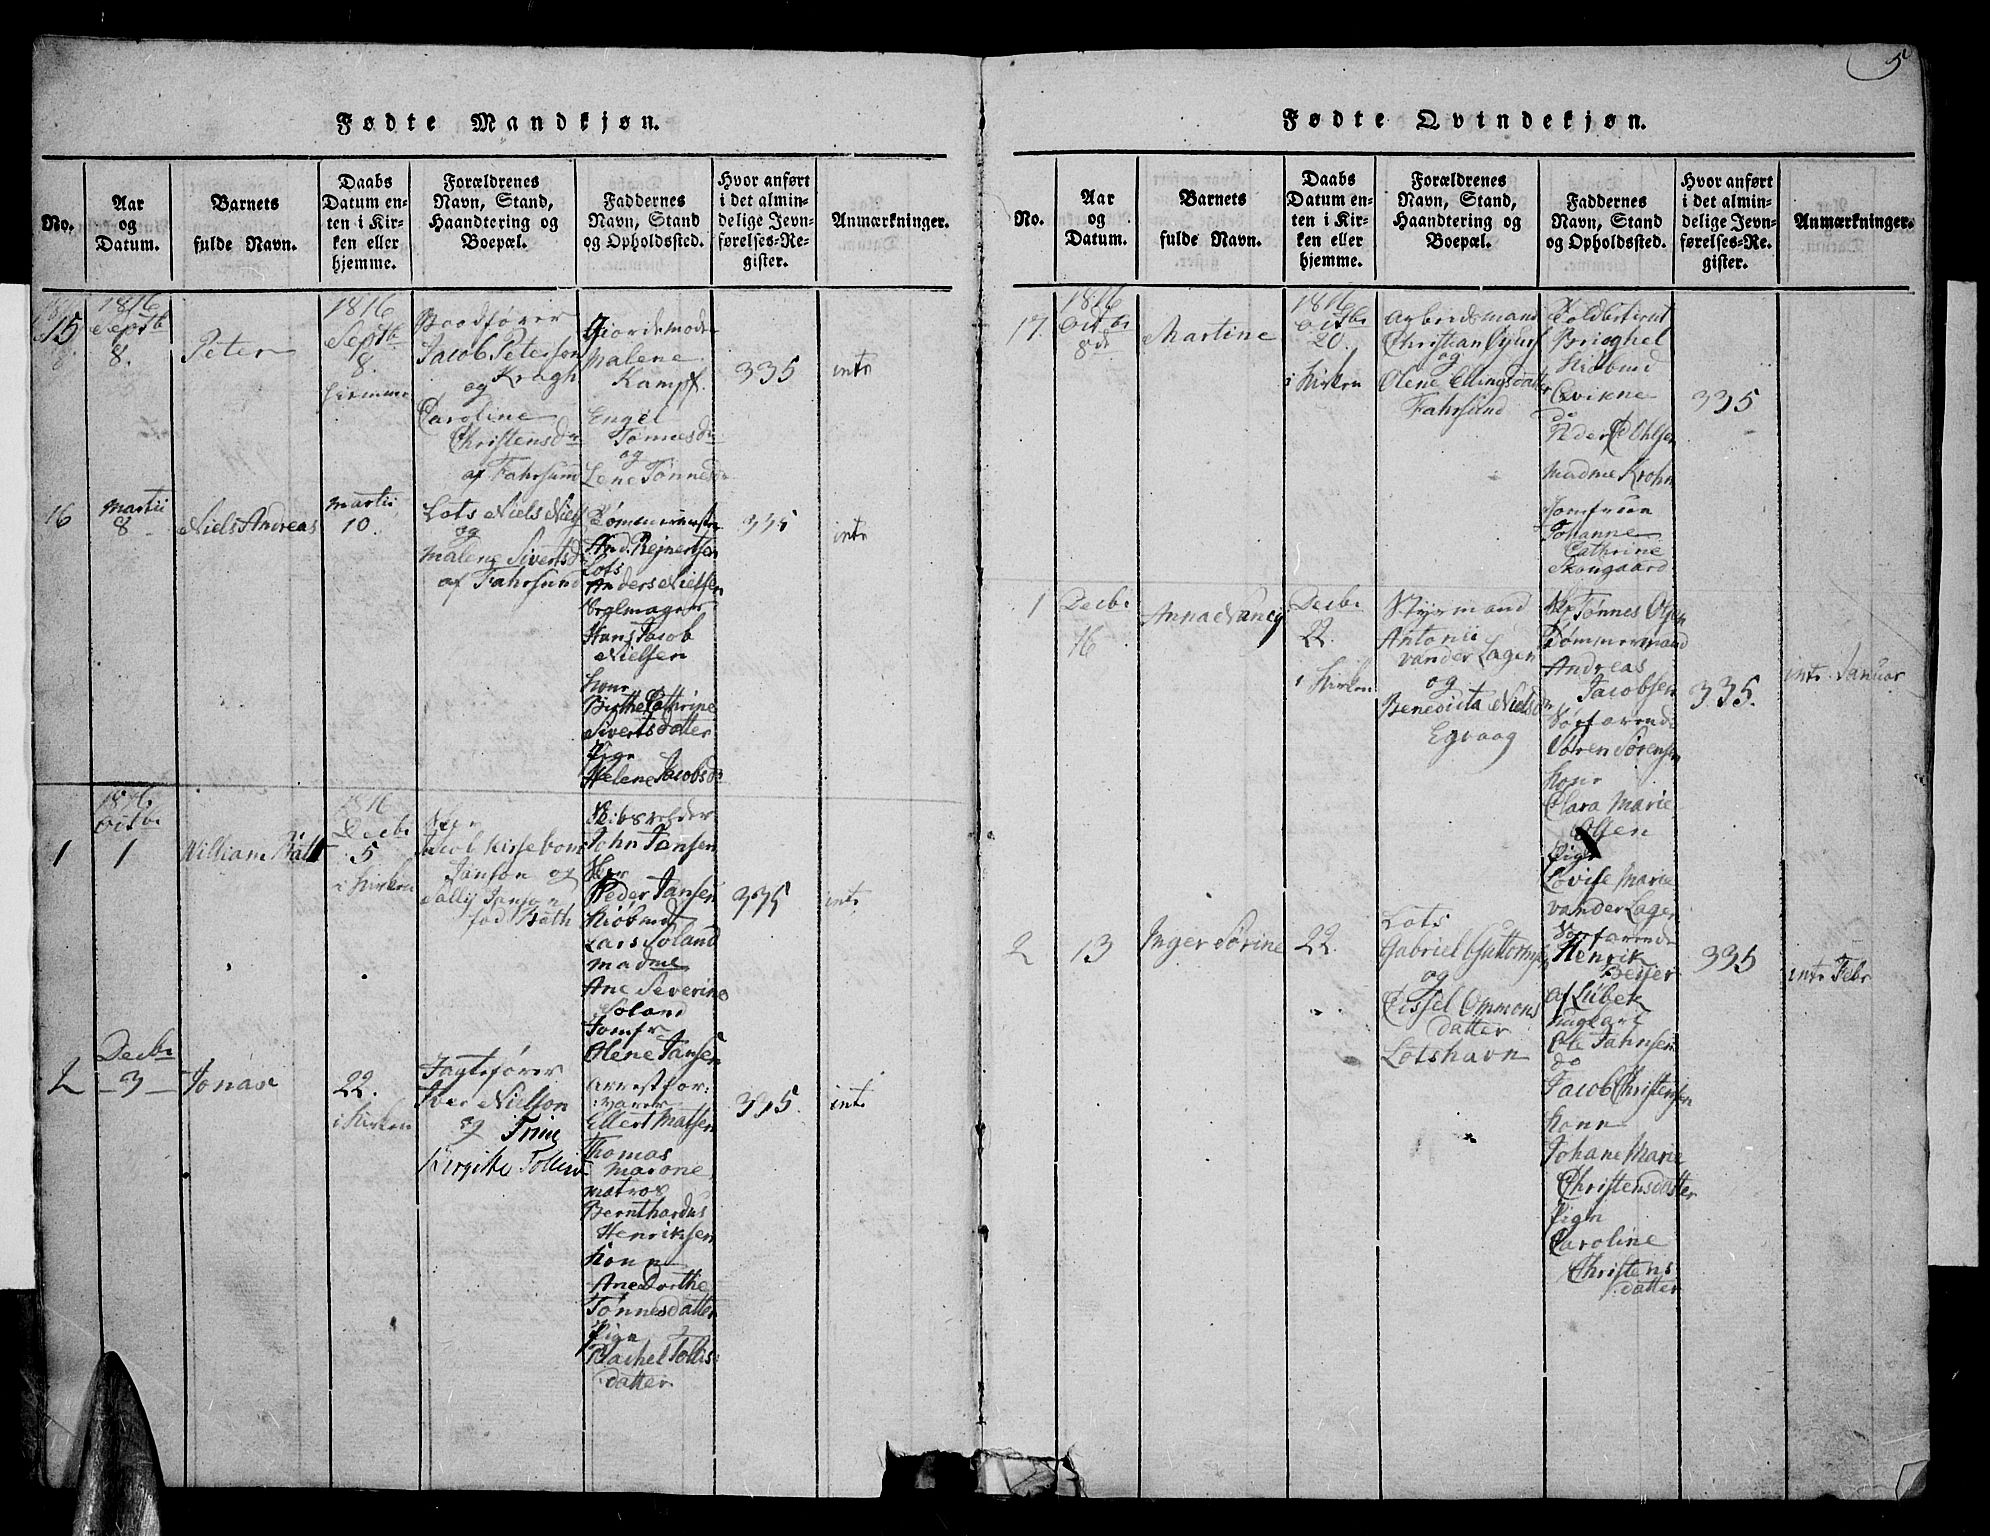 5
Fødte Mandkjøn.
No.
Aar
og
Datum.
Barnets
fulde Navn.
Daabs
Datum en-
ten i Kir-
ken eller
hjemme.
Forældrenes
Navn, Stand,
Haandtering og
Boepæl.
Faddernes
Navn, Stand
og Opholdssted.
Hvor anført
i det almin-
delige Jevn-
førelses-Re-
gister.
Anmærkninger.
15
1816
Septb
8.
Peter
1816
Septb
8.
hiemme
Baadfører
Jacob Petersen
og Kragh
Caroline
Christensdr
af Fahrsund
Giordemoder
Malene
Kampf.
Engel
Tønnesdr
og
Lene Tønnesdr
335
intr
16
Martii
8
Niels Andreas
Martii
10.
Lots Niels Niels
og
Malene Sivertsd
af Fahrsund
Tømmermestr
And. Rejnertsen
Lots
Anders Nielsen
Hans Jacob
Nielsen
Kone
Birthe Cathrine
Sivertsdatter
Pige
Helene Jacobsdr
335
intr
1
1816
Octbr
1
William Bått
1816
Decbr
5
i Kirken
Herr
Jacob Kirsebom
Janson og
Sally Janson
fød Båth
Skibsreder
John Jansen
Herr
Peder Jansen
Kiøbmd
Lars Soland
Madme
Ane Severine
Soland
Jomfr
Olene Jansen
335
intr
2
Decbr
3
Jonas
22.
i Kirken
Jagtefører
Iver Nielson
og Trine
Birgitte Tollisd
Arrestfor-
varer
Ellert Matsen
Thomas
Marone
Matros
Bernthardus
Henriksen
Kone
Ane Dorthe
Tønnesdatter
Pige
Rachel Tollis-
datter
335.
intr
Fødte Qvindekjøn.
No.
Aar
og
Datum.
Barnets
fulde Navn.
Daabs
Datum en-
ten i Kir-
ken eller
hjemme.
Forældrenes
Navn, Stand,
Haandtering og
Boepæl.
Faddernes
Navn, Stand
og Opholdssted.
Hvor anført
i det almin-
delige Jevn-
førelses-Re-
gister.
Anmærkninger.
17.
1816
Octbr
8de
Martine
1816
Octbr
20.
i Kirken
Arbeidsmand
Christian
og
Olene Ellingsdatter
Fahrsund
Brioghel
Kiøbmd
Qvikne
do
Peder Ohlsen
Madme Krohn
Jomfruen
Johanne
Cathrine
Skougaard
335
1
Decbr
16
Anna Nancy
Decbr
22.
i Kirken
Styrmand
Antonii
vander Lagen
og
Benedicta Nielsdr
Egvaag
Tønnes Olsen
Tømmermand
Andreas
Jacobsen
Søefarende
Søren Sørensen
Kone
Clara Marie
Olsen
Pige
Lovise Marie
vander Lagen
335.
intr Januar
2
13
Inger Sørine
22.
Lots
Gabriel Guttormsen
og
Sissel Ommons
datter
Lotshavn
Søefarende
Henrik
Beiser
af Lübek
Ole Jahnsen
do
Jacob Christensen
Kone
Johane Marie
Christensdatter
Pige
Caroline
Christens
datter
335
intr Febr